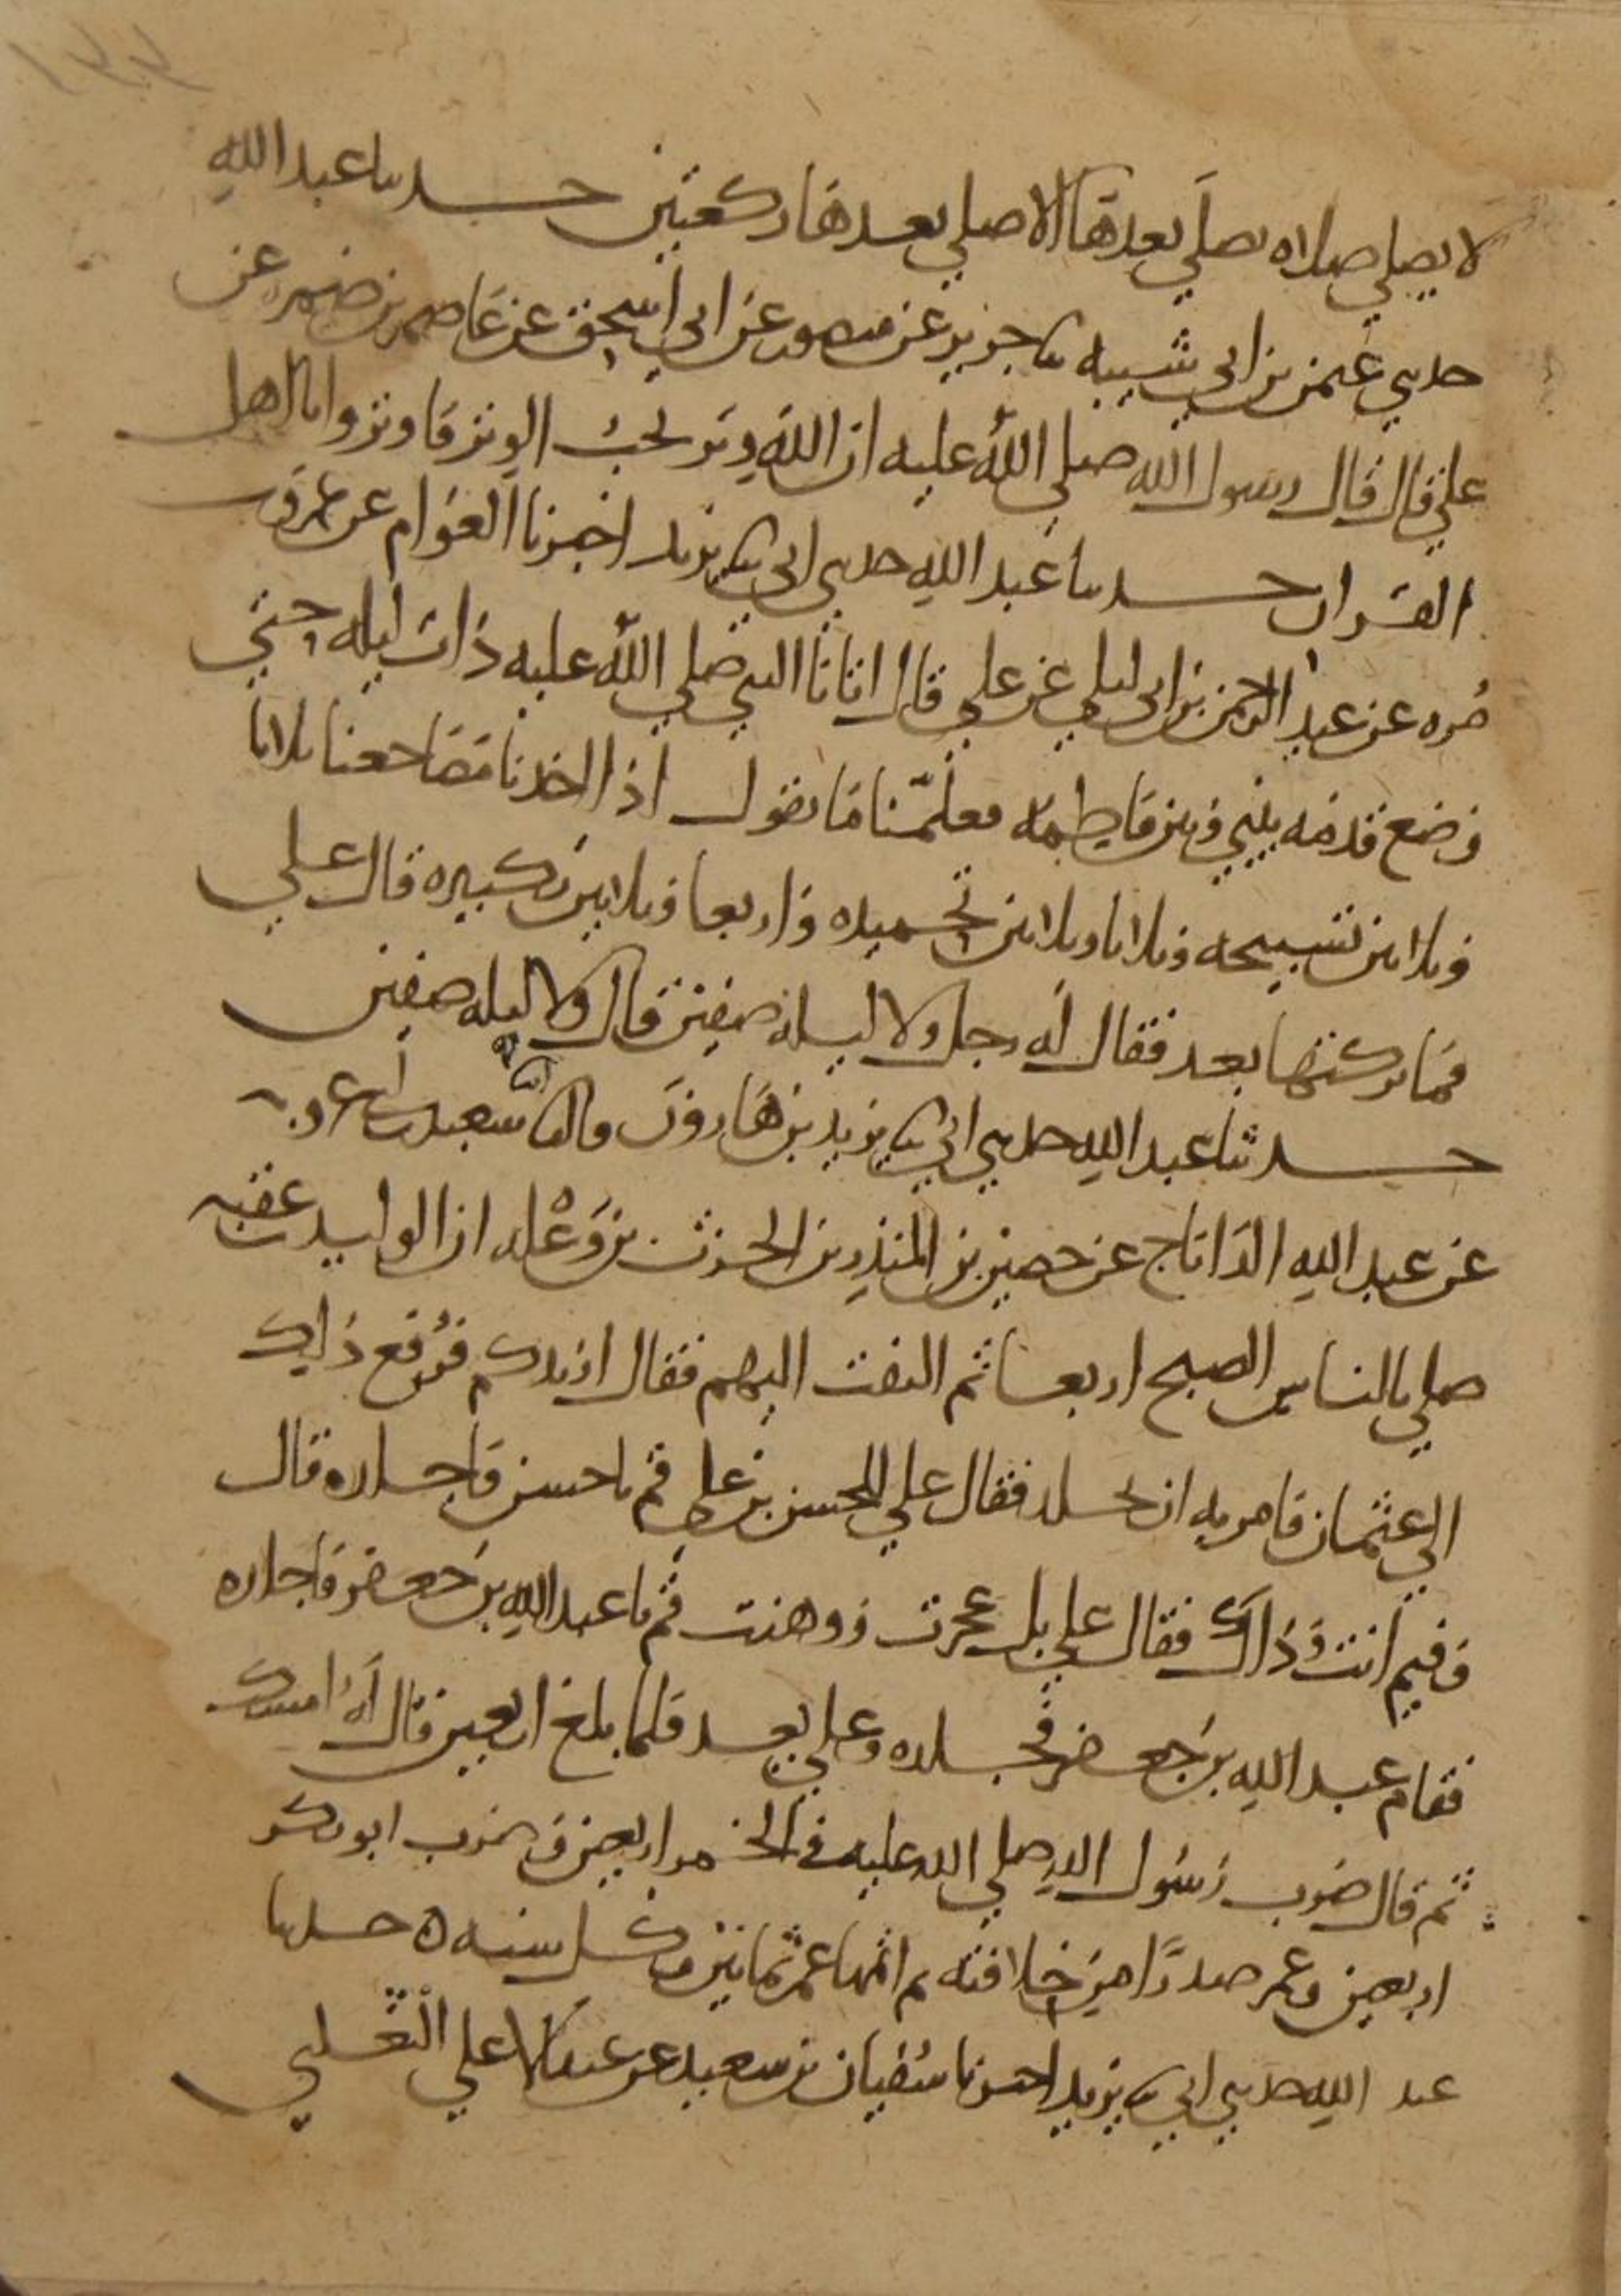 ١٣٣
لا يصلي صلاة يصلى بعدها الا صلى بعدها ركعتين حدثنا عبد الله
حدثني عثمن بن ابي شيبه ثنا جرير عن منصور عن ابي اسحق عن عاصم بن ضمره عن
علي قال قال رسول الله صلى الله عليه ان الله وتر يحب الوتر فاوتروا يا اهل
القران حدثنا عبد الله حدثني ابي ثنا يزيد اخبرنا العوام عن عمرو بن
مره عن عبد الرحمن بن ابي ليلي عن علي قال اتانا النبي صلى الله عليه ذات ليله حتى
وضع قدمه بيني وبين فاطمه فعلمنا ما نقول اذا اخذنا مضاجعنا ثلاثا
وثلاثين تسبيحه وثلاثا وثلاثين تحميده واربعا وثلاثين تكبيره قال علي
فما تركتها بعد فقال له رجل ولا ليلة صفين قال ولا ليله صفين
حدثنا عبد الله حدثني ابي ثنا يزيد بن هارون قال انا سعيد بن ابي عروبه
عن عبد الله الداناج عن حصين بن المنذر بن الحرث بن وعله ان الوليد بن عقبه
صلى بالناس الصبح اربعا ثم التفت اليهم فقال ازيدكم فرفع ذلك
الي عثمان فامر به ان يجلد فقال علي للحسن بن علي قم يا حسن فاجلده قال
وفيم انت وذاك فقال علي بل عجزت ووهنت قم يا عبد الله بن جعفر فاجلده
فقام عبد الله بن جعفر فجلده وعلي يعد فلما بلغ اربعين قال له امسك
ثم قال ضرب رسول الله صلى الله عليه في الخمر اربعين وضرب ابو بكر
اربعين وعمر صدرا من خلافته ثم اتمها عمر ثمانين وكل سنه ه حدثنا
عبد الله حدثني ابي ثنا يزيد اخبرنا سفيان بن سعيد عن عبد الاعلي الثعلبي